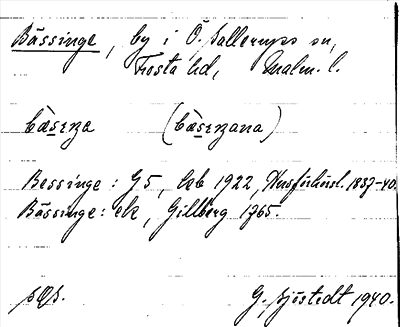 Bässinge, by i Ö. Sallerups sn,
Frosta hd, Malm. l.
bæ̀sɛŋa (bæ̀sɛŋana)
Bessinge: G5, leb 1922, Husförhörsl. 1837-40.
Bässinge: ek, Gillberg 1765.
G. Sjöstedt 1940.